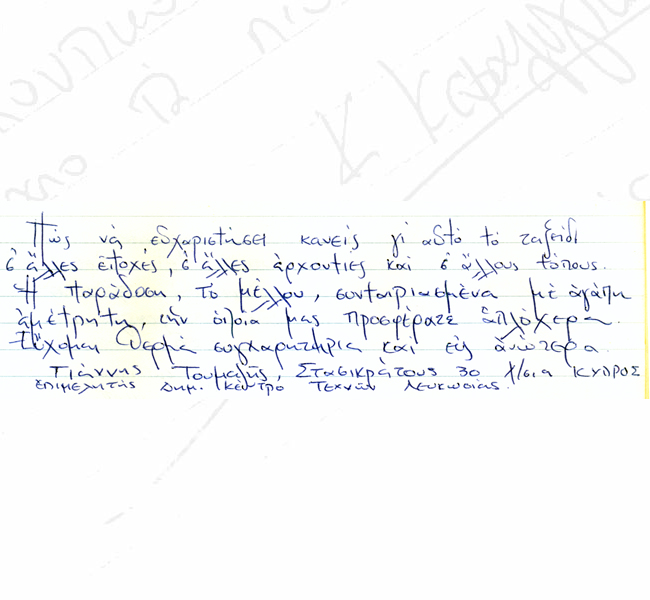 Πῶς νὰ εὐχαριστήσει κανεὶς γι αὐτὸ τὸ ταξείδι
σ ἄλλες ἐποχές, σ ἄλλες ἀρχοντιὲς καὶ σ ἄλλους τόπους.
Ἡ παράδοση, τὸ μέλλον, συνταιριασμένα μὲ ἀγάπη
ἀμέτρητη, τὴν ὁποία μας προσφέρατε ἁπλόχερα.
Εὔχομαι θερμὰ συγχαρητήρια καὶ εἰς ἀνώτερα.
Γιάννης Τουμαζῆς, Στασικράτους 30 Λ/σια ΚΥΠΡΟΣ
ἐπιμελητὴς Δημ. Κέντρο Τεχνῶν Λευκωσίας.